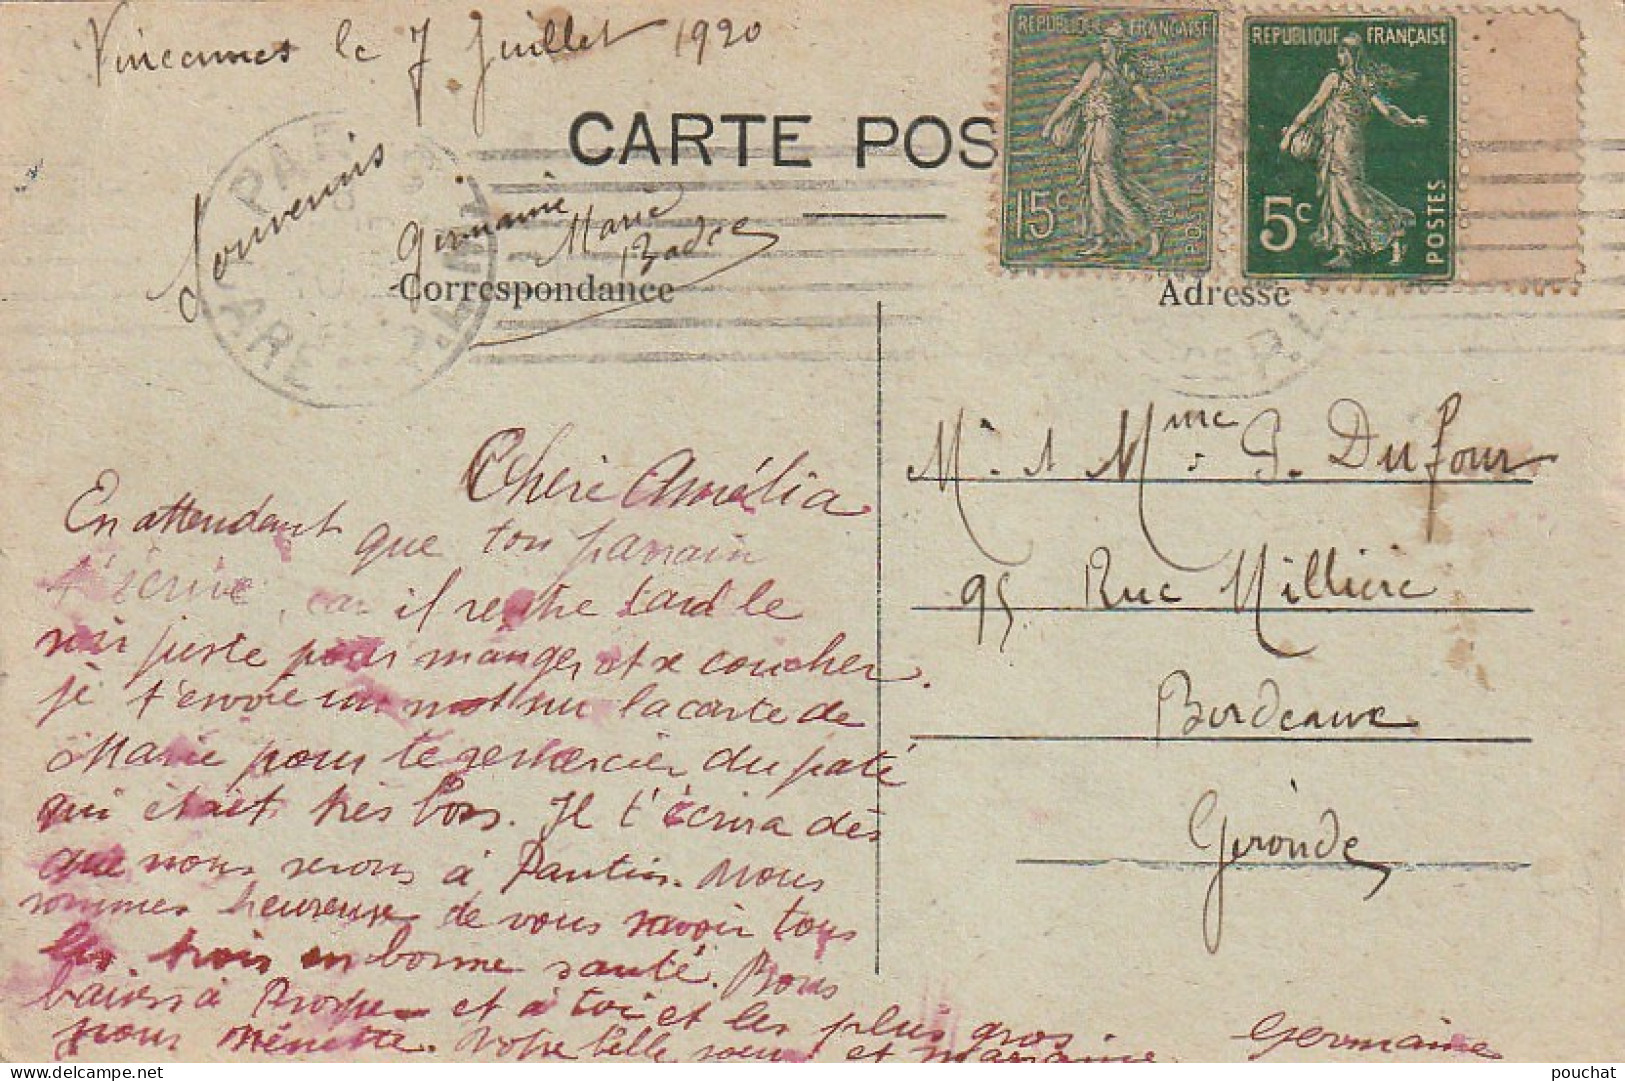 Vincennes le 7 Juillet 1920
CARTE POS
REPUBLIQUE FRANÇAISE
15c
POSTES
REPUBLIQUE FRANÇAISE
5c
POSTES
PARIS
GARE
Souvenirs
Germaine
Marie
Badre
Correspondance
Adresse
Chère Amélia
En attendant que ton parrain
t'écrive, car il rentre tard le
soir juste pour manger et se coucher.
je t'envoie un mot sur la carte de
Marie pour te remercier du pâté
qui était très bon. Il t'écrira dès
que nous serons à Pantin. Nous
sommes heureuse de vous savoir tous
les trois en bonne santé. Bons
baisers à Prosper et à toi et les plus gros
pour Ménette. Votre belle soeur et marraine Germaine
M. et Mme G. Dufour
95 Rue Millière
Bordeaux
Gironde
© delcampe.net
pouchat